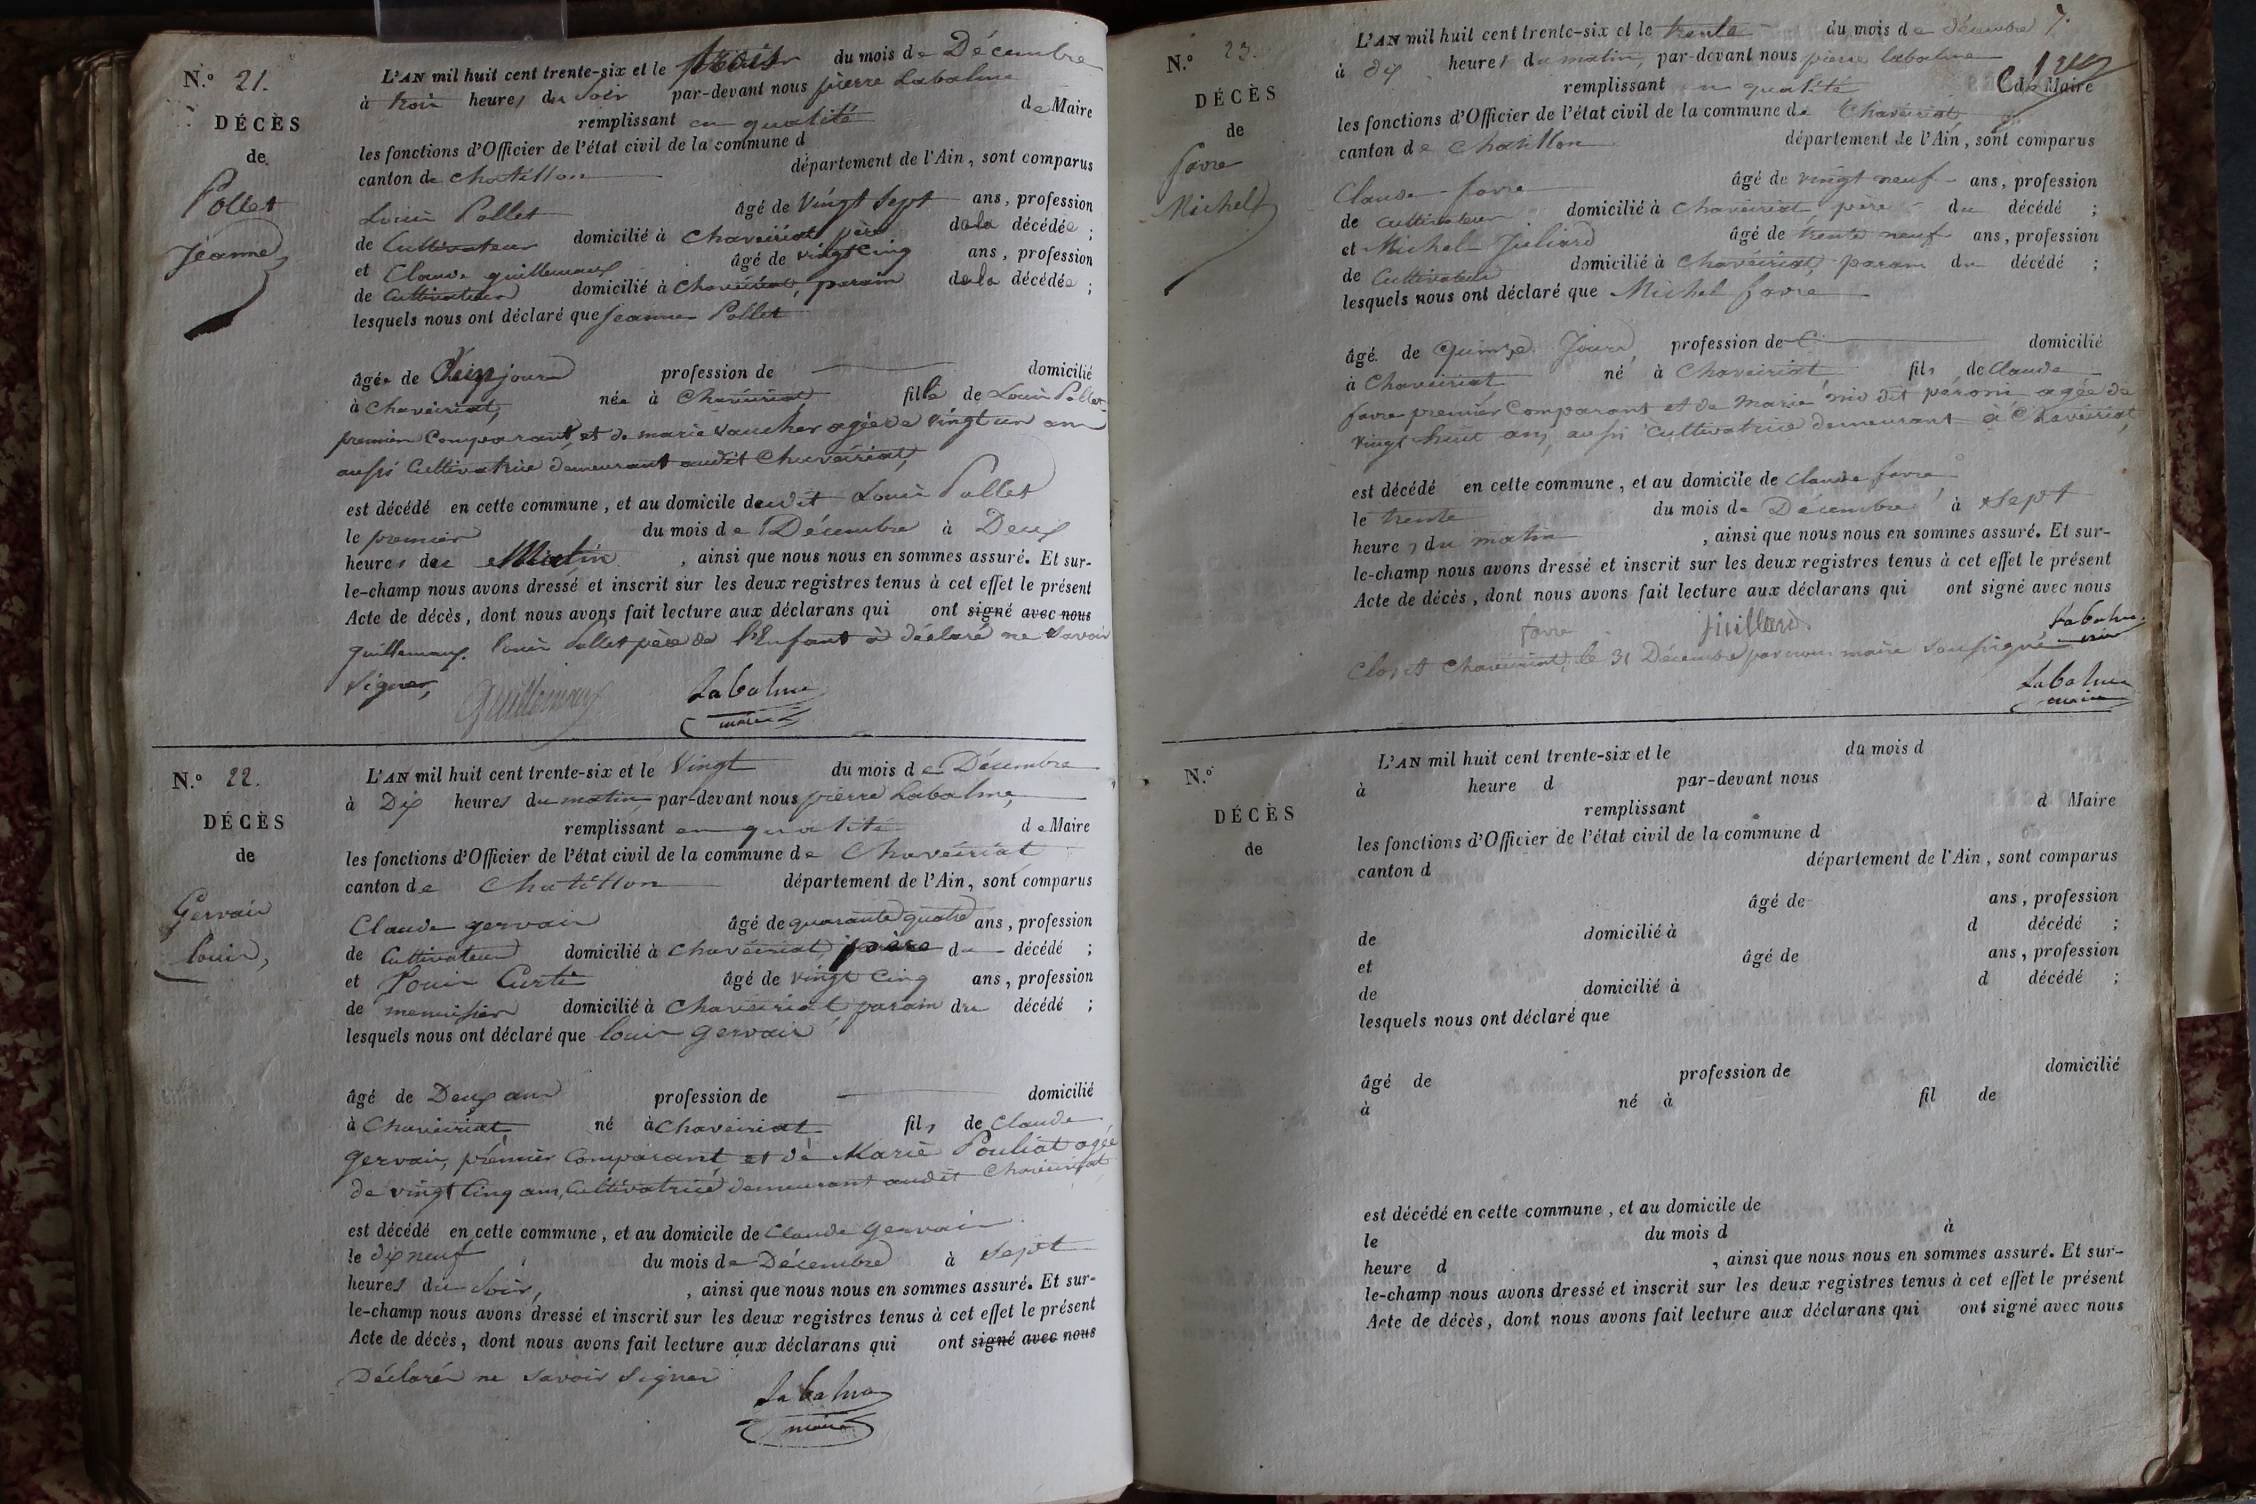 N.º 21.
DÉCÈS
de
Pollet
Jeanne
L'AN mil huit cent trente-six et le du mois de Décembre
à trois heures du soir par-devant nous pierre Labalme
remplissant en qualité de Maire
les fonctions d'Officier de l'état civil de la commune d
canton de chatillon département de l'Ain, sont comparus
Louis Pollet âgé de vingt sept ans, profession
de Cultivateur domicilié à chaveiriat père de la décédée ;
et Claude guillemaux âgé de vingt cinq ans, profession
de Cultivateur domicilié à chaveiriat, parain de la décédée ;
lesquels nous ont déclaré que jeanne Pollet
âgée de jours profession de domicilié
à chaveiriat, née à Chaveiriat fille de Louis Pollet
premier Comparant, et de marie vaucher agée de vingt un ans
aussi Cultivatrice demeurant audit Chaveiriat,
est décédé en cette commune, et au domicile dudit Louis Pollet
le premier du mois de Décembre à Deux
heures du Matin, ainsi que nous nous en sommes assuré. Et sur-
le-champ nous avons dressé et inscrit sur les deux registres tenus à cet effet le présent
Acte de décès, dont nous avons fait lecture aux déclarans qui ont signé avec nous
guillemaux. louis pollet père de l'Enfant à déclaré ne savoir
signer,
Guillemaux Labalme
maire
N.º 22.
DÉCÈS
de
Gervais
louis,
L'AN mil huit cent trente-six et le Vingt du mois de Décembre
à Dix heures du matin par-devant nous pierre Labalme,
remplissant en qualité de Maire
les fonctions d'Officier de l'état civil de la commune de Chaveiriat
canton de Chatillon département de l'Ain, sont comparus
Claude gervais âgé de quarante quatre ans, profession
de Cultivateur domicilié à chaveiriat, père du décédé ;
et Louis Curti âgé de vingt cinq ans, profession
de menuisier domicilié à Chaveiriat parain du décédé ;
lesquels nous ont déclaré que louis gervais
âgé de Deux ans profession de domicilié
à Chaveiriat, né à chaveiriat fils de Claude
gervais, premier Comparant et de Marie Pouliat agée
de vingt Cinq ans, Cultivatrice demeurant audit Chaveiriat
est décédé en cette commune, et au domicile de Claude gervais
le dix neuf du mois de Décembre à sept
heures du soir, , ainsi que nous nous en sommes assuré. Et sur-
le-champ nous avons dressé et inscrit sur les deux registres tenus à cet effet le présent
Acte de décès, dont nous avons fait lecture aux déclarans qui ont signé avec nous
Déclarés ne savoir signer
Labalme
maire
N.º 23.
DÉCÈS
de
favre
Michel
L'AN mil huit cent trente-six et le trente du mois de décembre
à dix heures du matin, par-devant nous pierre labalme
remplissant en qualité de Maire
les fonctions d'Officier de l'état civil de la commune de Chaveiriat
canton de Chatillon département de l'Ain, sont comparus
Claude favre âgé de vingt neuf ans, profession
de cultivateur domicilié à chaveiriat père du décédé ;
et Michel Juliard âgé de trente neuf ans, profession
de Cultivateur domicilié à Chaveiriat, parain du décédé ;
lesquels nous ont déclaré que Michel favre
âgé de quinze jours, profession de domicilié
à Chaveiriat né à Chaveiriat fils de Claude
favre premier Comparant et de Marie dit agée de
vingt huit ans, aussi cultivatrice demeurant à Chaveiriat,
est décédé en cette commune, et au domicile de claude favre
le trente du mois de Décembre à sept
heures du matin, ainsi que nous nous en sommes assuré. Et sur-
le-champ nous avons dressé et inscrit sur les deux registres tenus à cet effet le présent
Acte de décès, dont nous avons fait lecture aux déclarans qui ont signé avec nous
favre juillard Labalme
Clos et Chaveiriat, le 31 Décembre par nous maire soussigné
Labalme
maire
N.º
DÉCÈS
de
L'AN mil huit cent trente-six et le du mois d
à heure d par-devant nous
remplissant d Maire
les fonctions d'Officier de l'état civil de la commune d
canton d département de l'Ain, sont comparus
âgé de ans, profession
de domicilié à d décédé ;
et âgé de ans, profession
de domicilié à d décédé ;
lesquels nous ont déclaré que
âgé de profession de domicilié
à né à fil de
est décédé en cette commune, et au domicile de
le du mois d à
heure d , ainsi que nous nous en sommes assuré. Et sur-
le-champ nous avons dressé et inscrit sur les deux registres tenus à cet effet le présent
Acte de décès, dont nous avons fait lecture aux déclarans qui ont signé avec nous